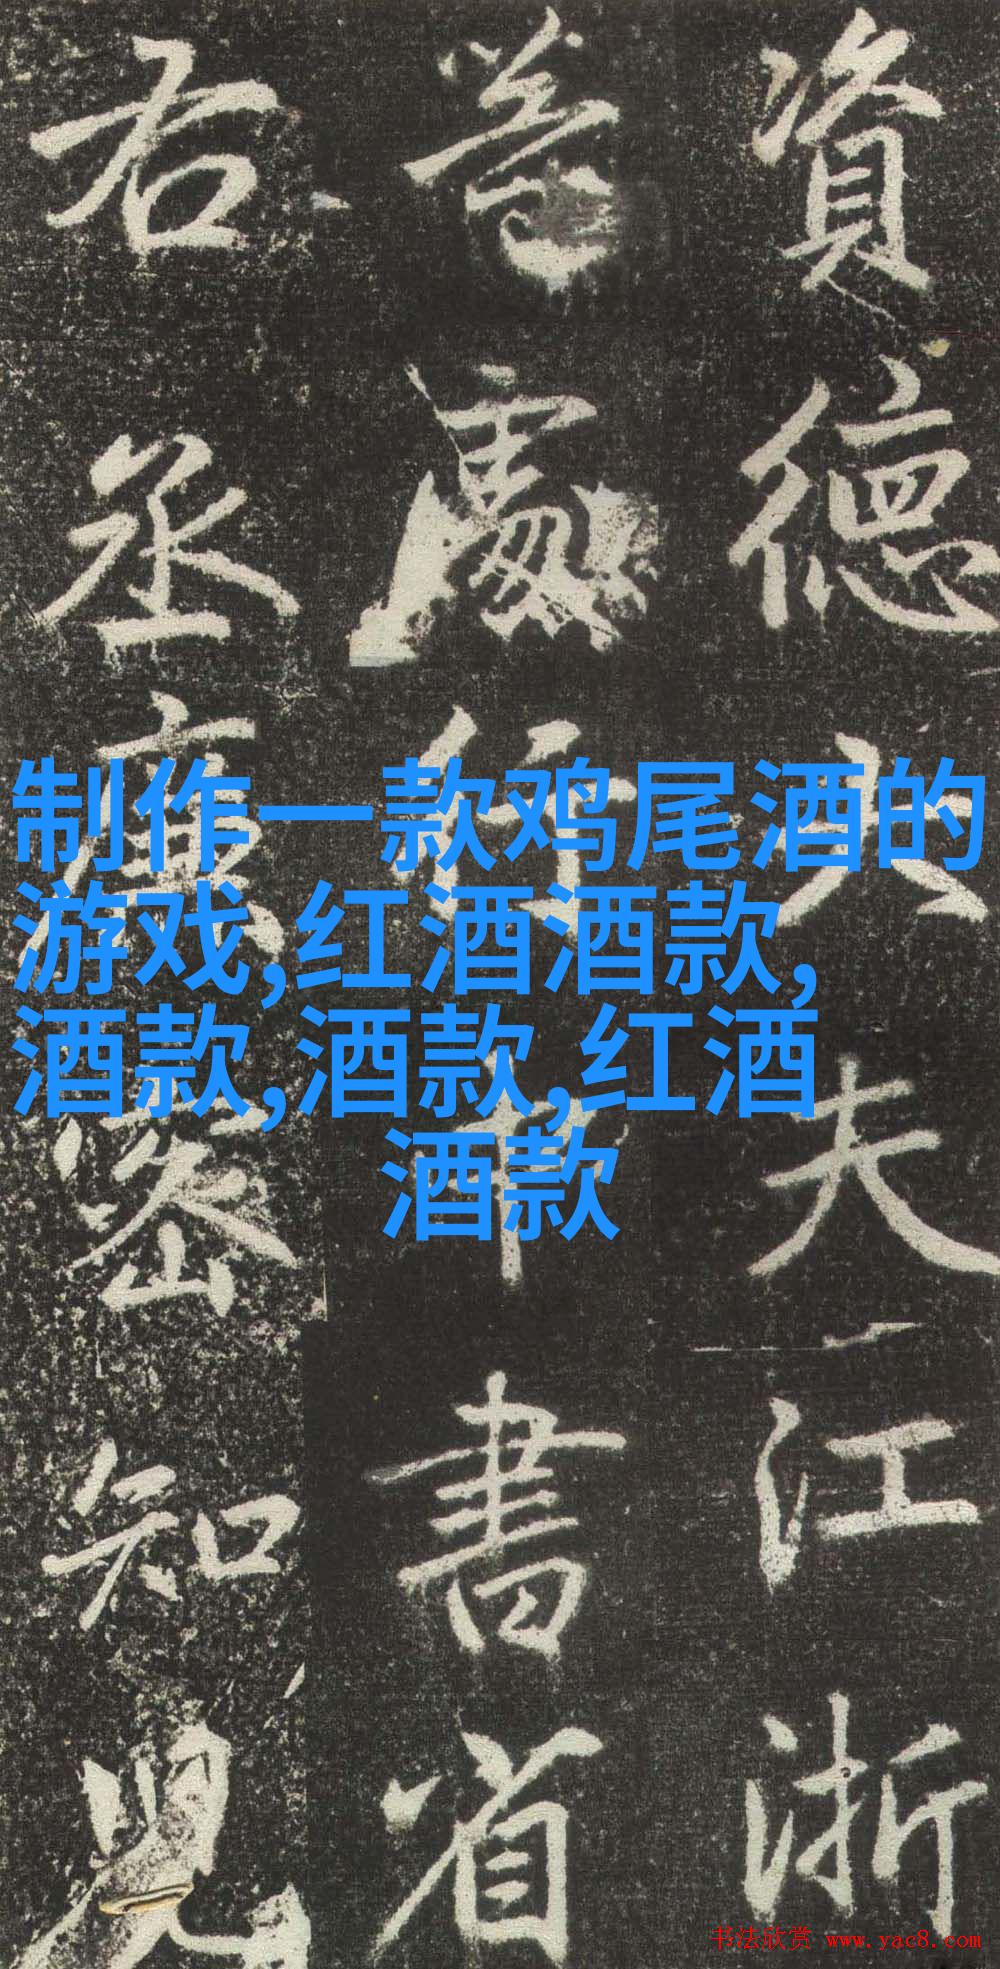 資德大夫江浙
等處行中書省
右丞廉密知兒
制作一款鸡尾酒的
游戏,红酒酒款,
酒款,酒款,红酒
酒款
书法欣赏 www.yac8.com